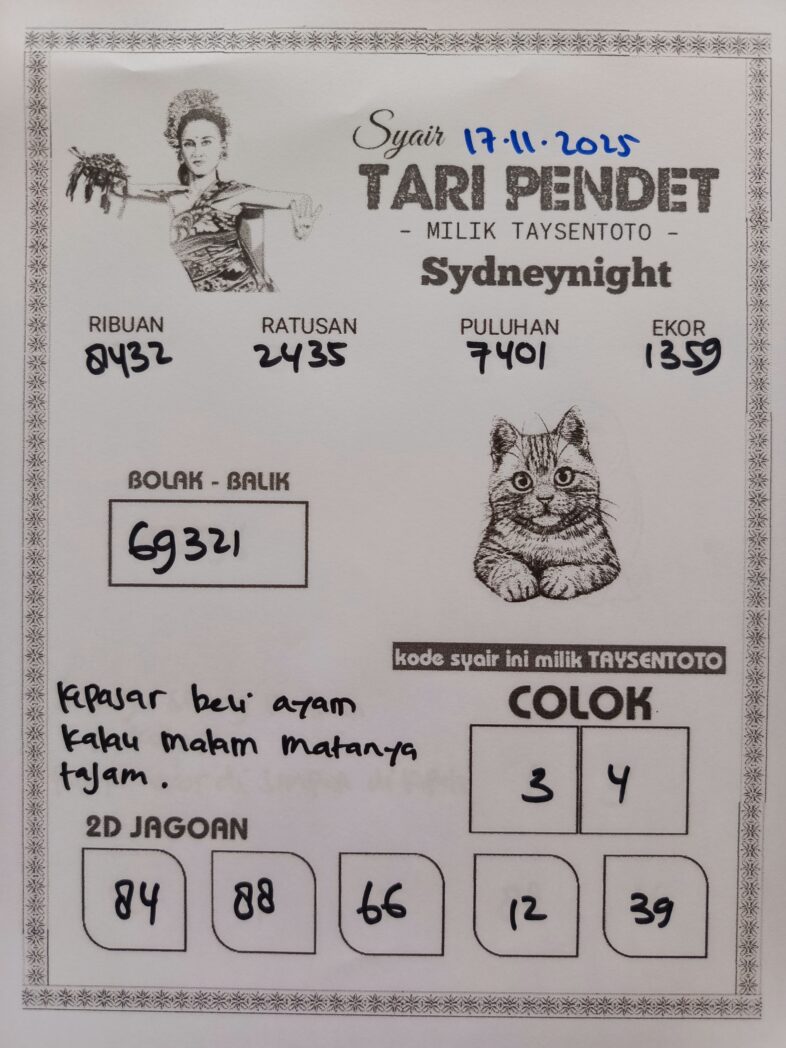 Syair 17.11.2025
TARI PENDET
- MILIK TAYSENTOTO -
Sydneynight
RIBUAN RATUSAN PULUHAN EKOR
8432 2435 7401 1359
BOLAK - BALIK
69321
kode syair ini milik TAYSENTOTO
kepasar beli ayam
kalau malam matanya
tajam.
COLOK
3 4
2D JAGOAN
84 88 66 12 39